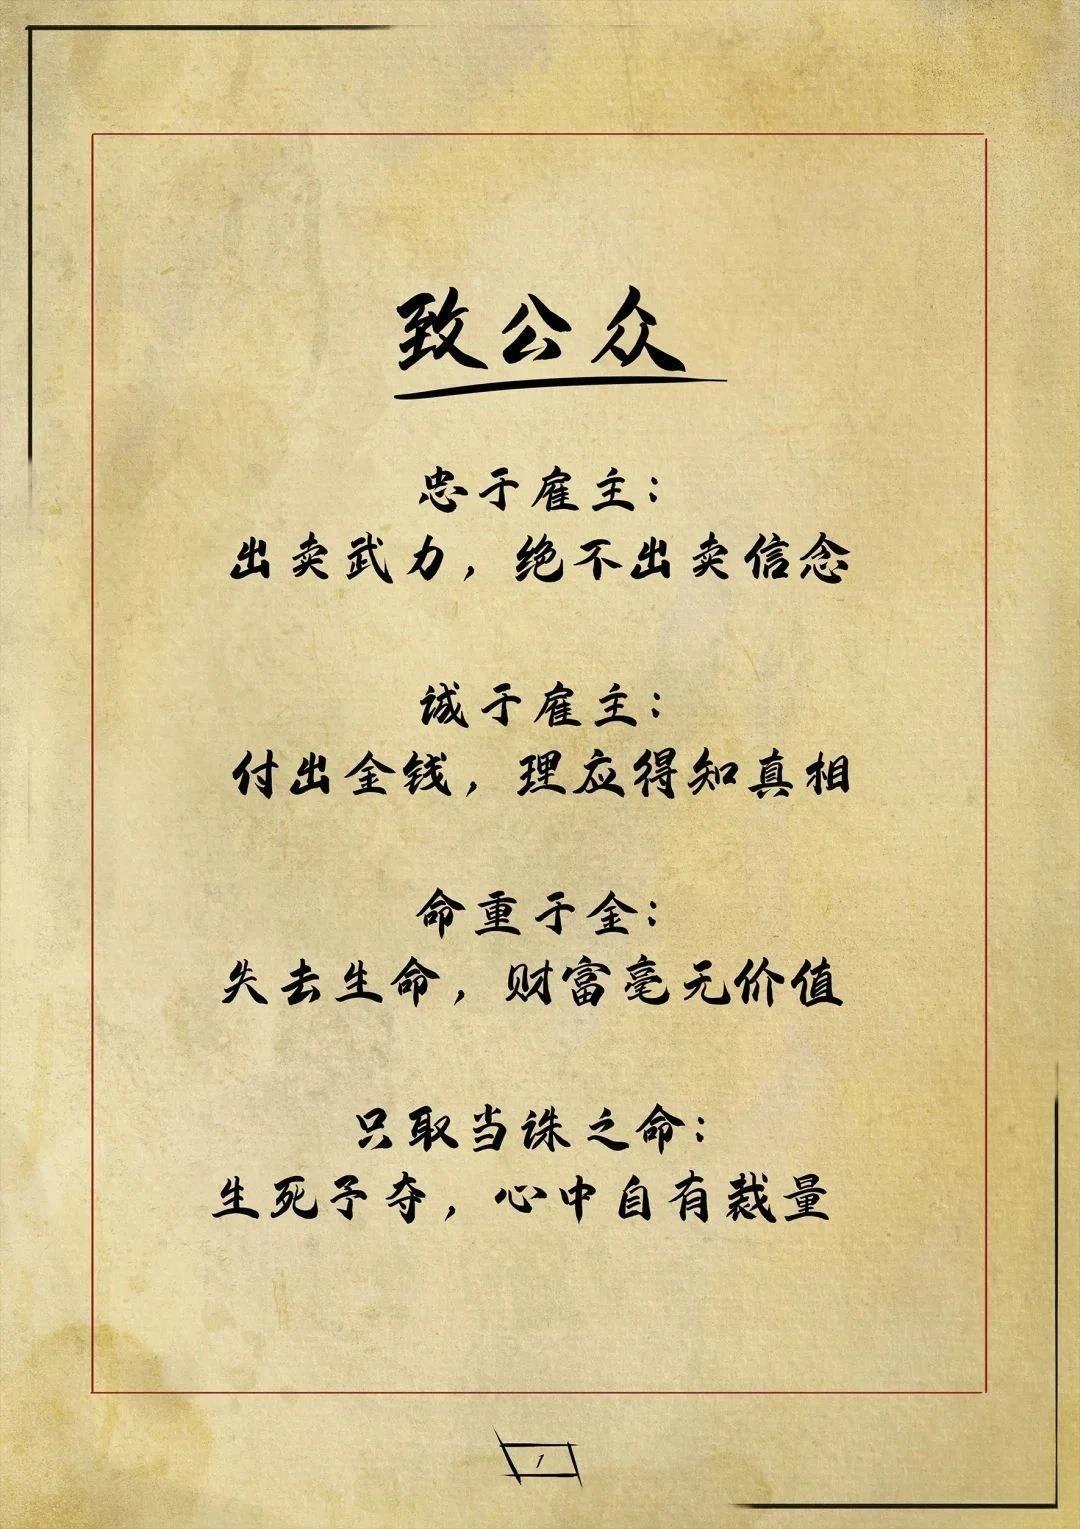 致公众
忠于雇主：
出卖武力，绝不出卖信念
诚于雇主：
付出金钱，理应得知真相
命重于金：
失去生命，财富毫无价值
只取当诛之命：
生死予夺，心中自有裁量
1